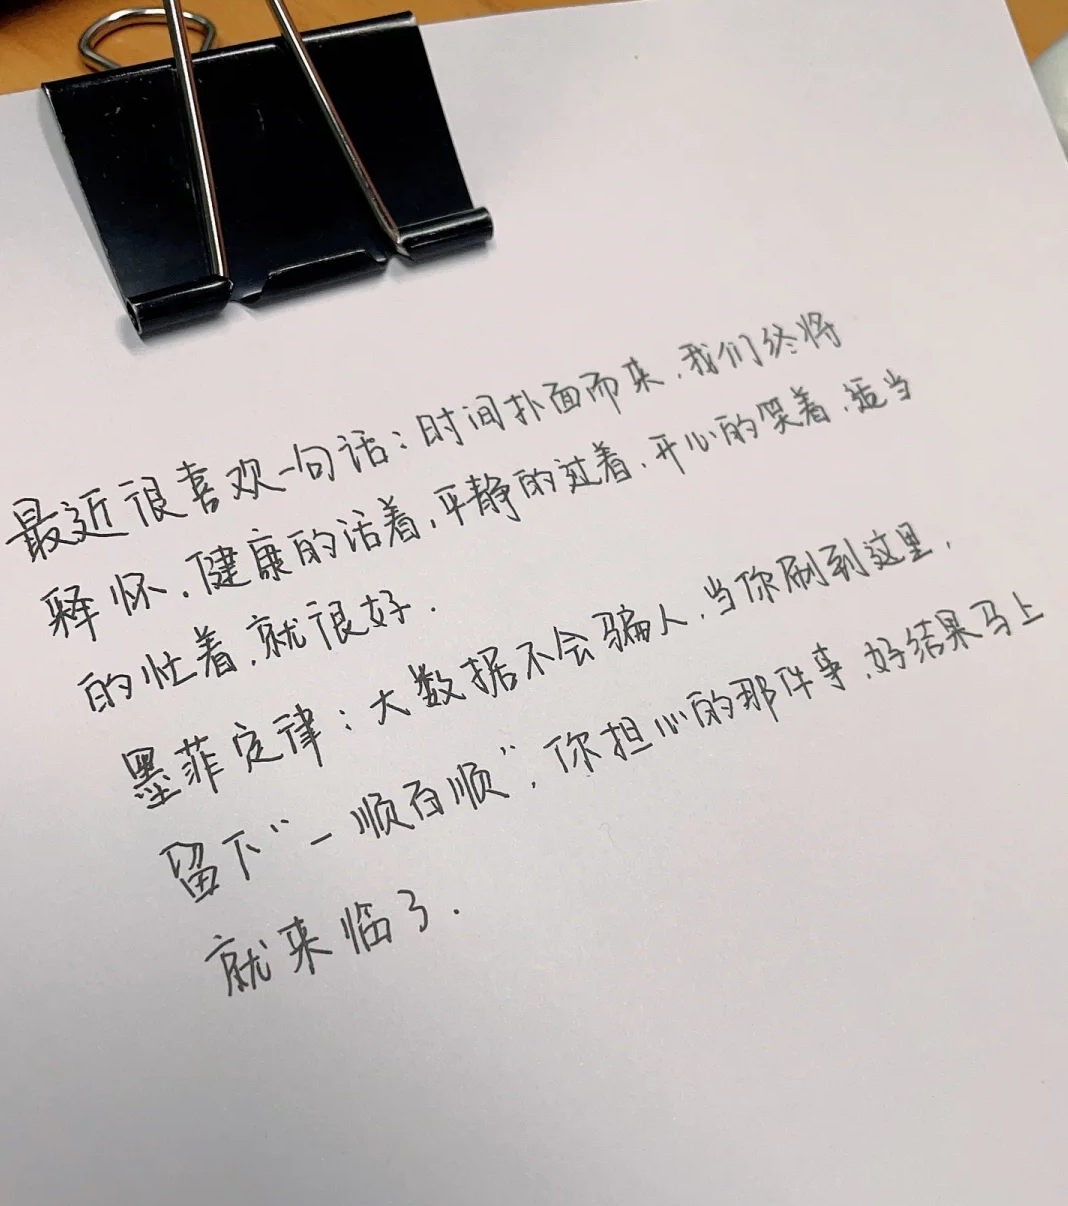 最近很喜欢一句话:时间扑面而来.我们终将
释怀.健康的活着.平静的过着.开心的笑着.适当
的忙着.就很好.
墨菲定律:大数据不会骗人.当你刷到这里.
留下“一顺百顺”.你担心的那件事.好结果马上
就来临了.